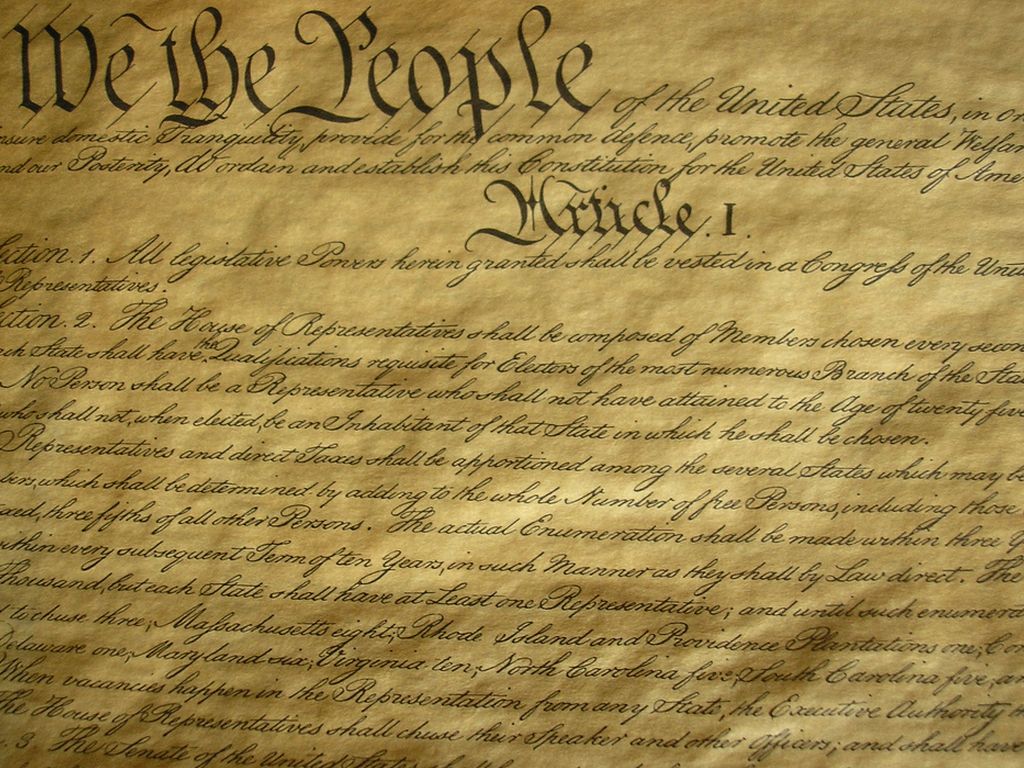 We the People of the United States, in or
nsure domestic Tranquility, provide for the common defence, promote the general Welfar
nd our Posterity, do ordain and establish this Constitution for the United States of Ame
Article. I.
ection. 1. All legislative Powers herein granted shall be vested in a Congress of the Unit
Representatives.
ction. 2. The House of Representatives shall be composed of Members chosen every secon
ch State shall have the Qualifications requisite for Electors of the most numerous Branch of the Stat
No Person shall be a Representative who shall not have attained to the Age of twenty five
who shall not, when elected, be an Inhabitant of that State in which he shall be chosen.
Representatives and direct Taxes shall be apportioned among the several States which may be
bers, which shall be determined by adding to the whole Number of free Persons, including those
axed, three fifths of all other Persons. The actual Enumeration shall be made within three Y
within every subsequent Term of ten Years, in such Manner as they shall by Law direct. The
Thousand, but each State shall have at Least one Representative; and until such enumera
l to chuse three, Massachusetts eight, Rhode Island and Providence Plantations one, Con
Delaware one, Maryland six, Virginia ten, North Carolina five, South Carolina five, an
When vacancies happen in the Representation from any State, the Executive Authority th
The House of Representatives shall chuse their Speaker and other Officers; and shall have
. 3 The Senate of the United States shall be composed of